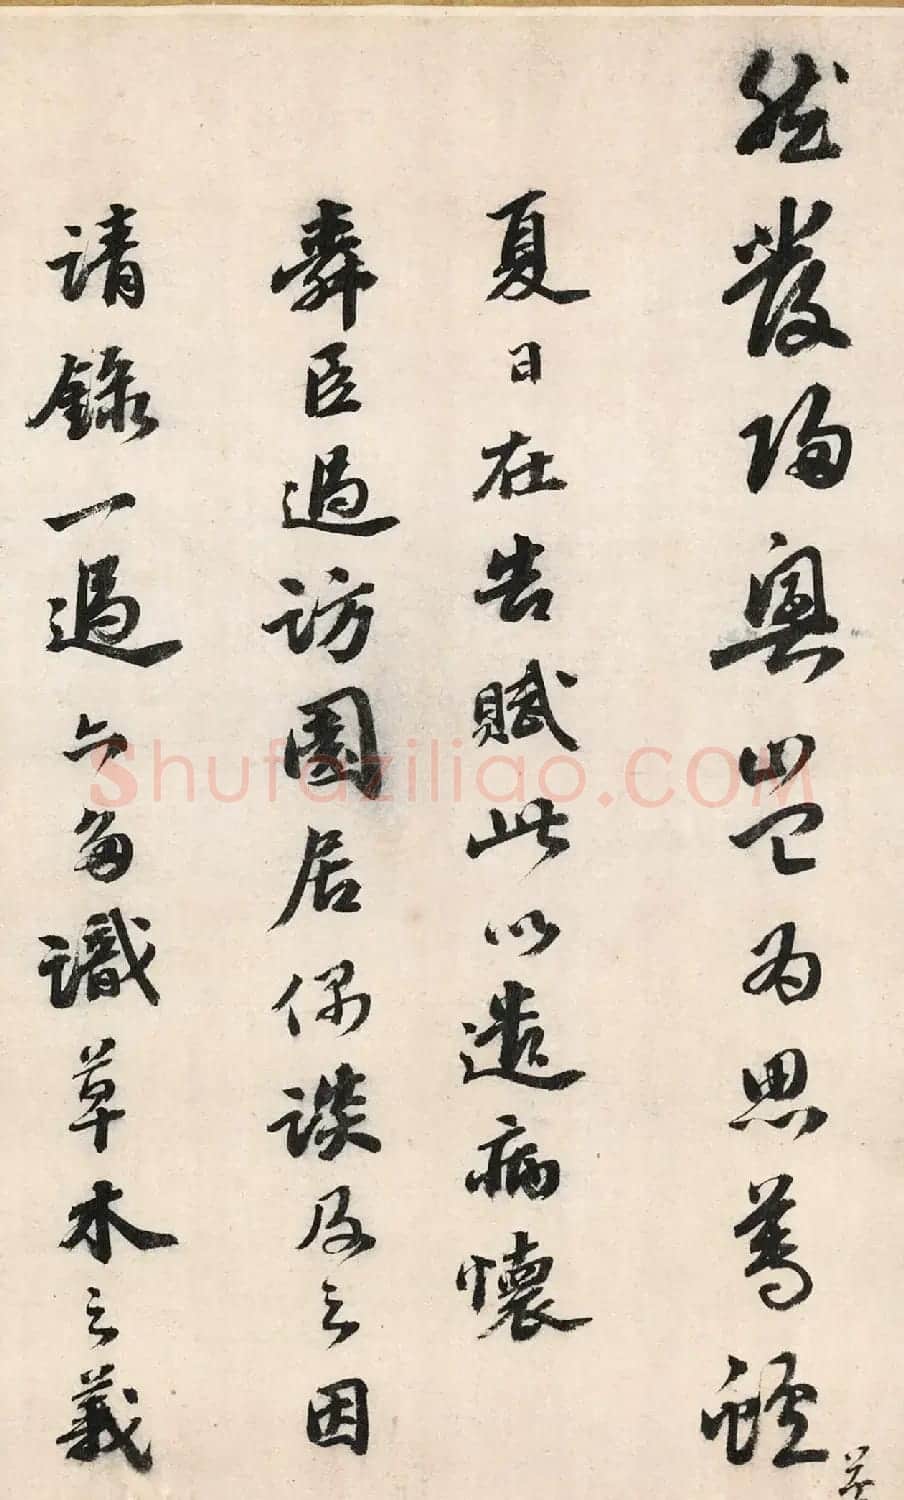 然發歸興豈為思蓴鱸
夏日在告賦此以遣病懷
舜臣過訪園居偶談及之因
請錄一過亦多識草木之義
Shufaziliao.COM